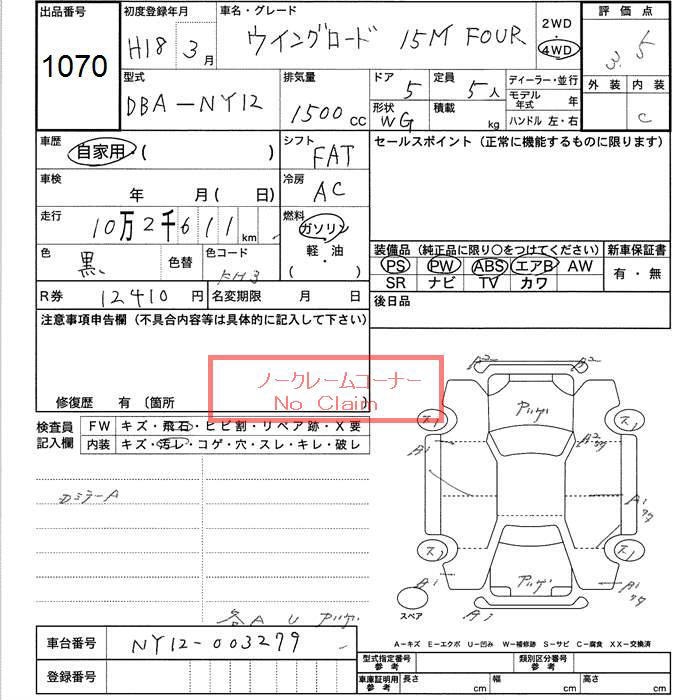 出品番号 初度登録年月 車名・グレード 2WD 評価点
1070 H18 3月 ウイングロード 15M FOUR 4WD 3.5
型式 排気量 ドア 定員 ディーラー・並行 外装 内装
DBA-NY12 1500cc 5 5人 モデル年式 年 C
形状 積載 ハンドル 左・右
WG kg
車歴 シフト セールスポイント(正常に機能するものに限ります)
自家用・( ) FAT
車検 冷房
年 月( 日) AC
走行 燃料
10万2千611km ガソリン
軽・油
( )
色 色替 色コード 装備品(純正品に限り○をつけてください) 新車保証書
黒 KH3 PS PW ABS エアB AW 有・無
SR ナビ TV カワ
R券 12410円 名変期限 月 日 後日品
注意事項申告欄(不具合内容等は具体的に記入して下さい)
ノークレームコーナー
No Claim
修復歴 有 〔箇所
検査員記入欄 FW キズ・飛石・ヒビ割・リペア跡・X要
内装 キズ・汚レ・コゲ・穴・スレ・キレ・破レ
A2 A2
アゲ
ス) ス)
A1 A2
A1
アゲ
ス) ス)
A1 A1
スペア A1
ミラーA
各A U アゲ
A-キズ E-エクボ U-凹み W-補修跡 S-サビ C-腐食 XX-交換済
車台番号 NY12-003279
登録番号
型式指定番号 参考 類別区分番号 参考
車庫証明用 参考 長さ cm 幅 cm 高さ cm